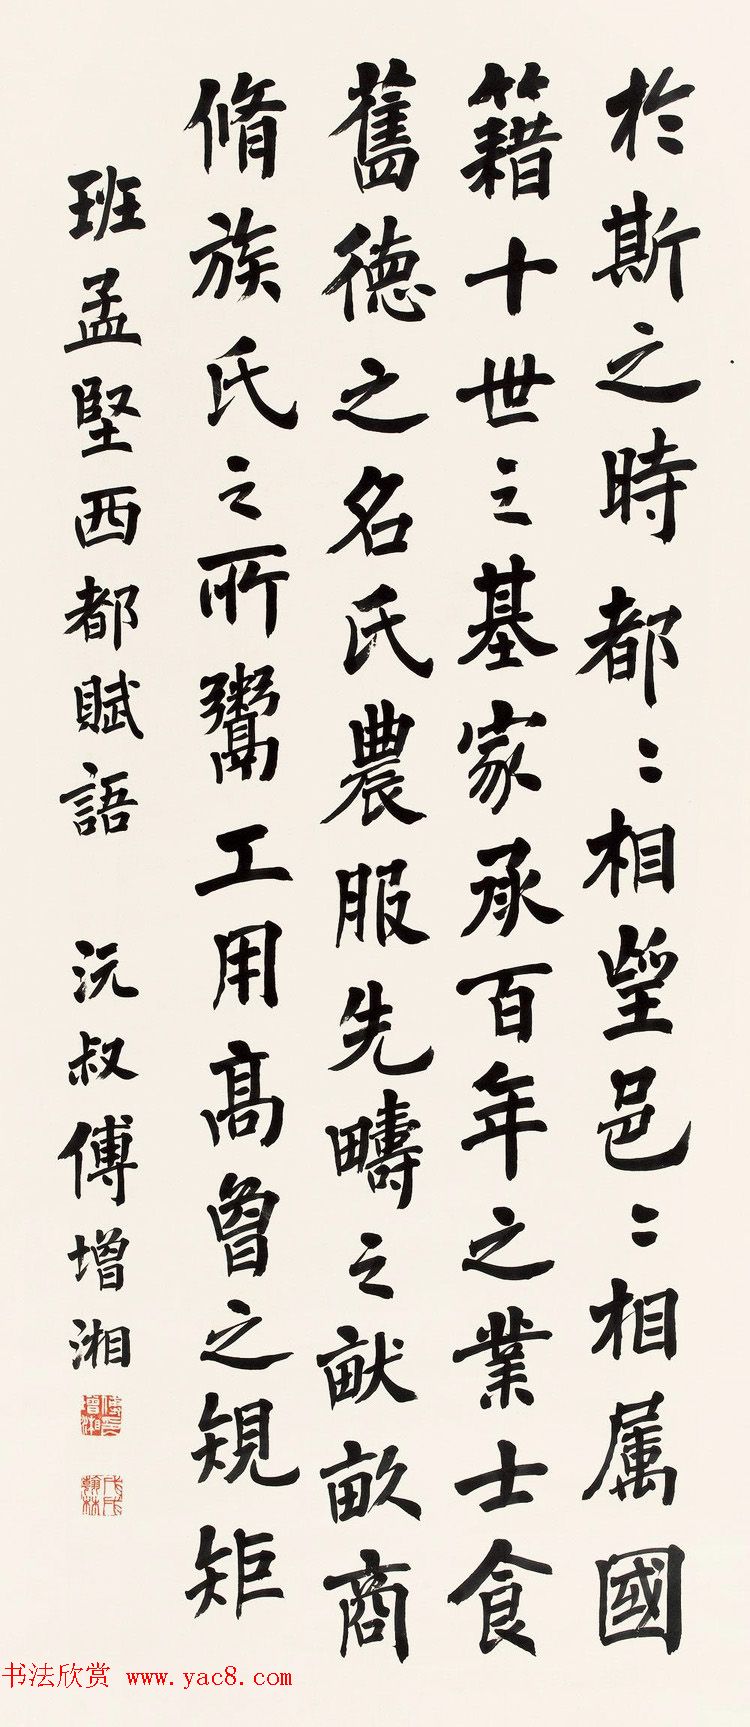 於斯之時都〻相望邑〻相属國
籍十世之基家承百年之業士食
舊德之名氏農服先疇之畎畝商
脩族氏之所鬻工用高曾之規矩
班孟堅西都賦語 沅叔傅增湘
傅增湘印
戊戌翰林
书法欣赏 www.yac8.com